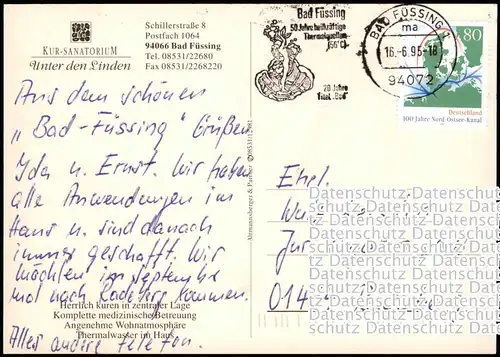 KUR-SANATORIUM
Unter den Linden
Schillerstraße 8
Postfach 1064
94066 Bad Füssing
Tel. 08531/22680
Fax 08531/2268220
Aus dem schönen
"Bad-Füssing" Grüßen
Ida u. Ernst. Wir haben
alle Anwendungen im
Haus u. sind danach
immer geschafft. Wir
möchten im September
mal nach Radeberg kommen.
Alles andere telefon.
Herrlich kuren in zentraler Lage
Komplette medizinische Betreuung
Angenehme Wohnatmosphäre
Thermalwasser im Haus
Bad Füssing
50 Jahre heilkräftige
Thermalquellen
(56°C)
20 Jahre
Titel „Bad“
BAD FÜSSING 1
ma
16.-6.95-18
94072
80
Deutschland
100 Jahre Nord-Ostsee-Kanal
Ehel.
014
Datenschutz Datenschutz
Datenschutz Datenschutz
Datenschutz Datenschutz
Datenschutz Datenschutz
Datenschutz Datenschutz
Datenschutz Datenschutz